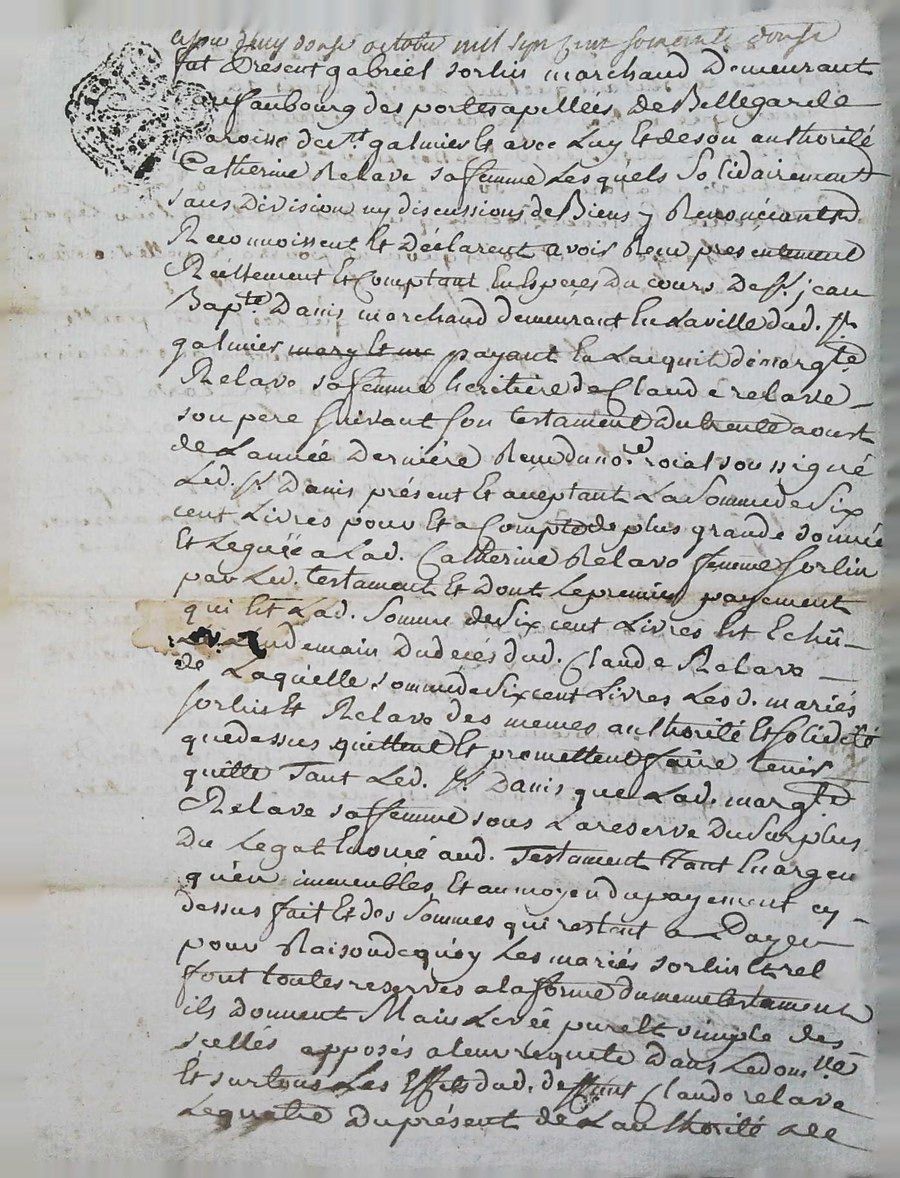 cejourd'huy douse octobre mil sept cent soixante douse
fut Présent gabriel sorlin marchand Demeurant
au faubourg des portes apellées De Bellegarde
Paroisse de st. galmier Et avec Luy Et de son authorité
Catherine Relave sa femme Lesquels Solidairement
sans Division ny discussions de Biens y Renonciants
Reconnoissent Et Déclarent avoir Reçu presentement
Réellement Et Comptant En Especes Du cours De sr. jean
Bapte. Danis marchand demeurant En La ville dud. st.
galmier payant En L'acquit de margte.
Relave sa femme heritière de Claude relave
son père suivant son testament du trente aoust
de L'année Dernière Reçu du nore. roial soussigné
Led. sr. Danis présent Et aceptant La Somme de Six
cent Livres pour Et a Compte de plus grande donnée
Et Leguée a Lad. Catherine Relave femme sorlin
par Led. testament Et dont Le premier payement
qui Est Lad. Somme de Six cent Livres Est Echû
Lendemain du decés dud. Claude Relave
de Laquelle somme de Six cent Livres Les d. mariés
sorlin Et Relave des memes authorité Et solidité
que dessus quittent Et promettent faire tenir
quitte Tant Led. sr. Danis que Lad. margte.
Relave sa femme sous La reserve Du Surplus
Du Legat Enoncé aud. Testament Tant En argen
qu'en immeubles, Et au moyen du payement cy
dessus fait Et des Sommes qui restent a Payer
pour Raison de quoy Les mariés sorlin Et rel
font toutes reserves a la forme du meme testament
ils donnent Main Levée pure Et simple des
scellés apposés a leur requete Dans Le domlle
Et sur tous Les Effets dud. deffunt Claude relave
Le quatre Du présent de L'authorité de